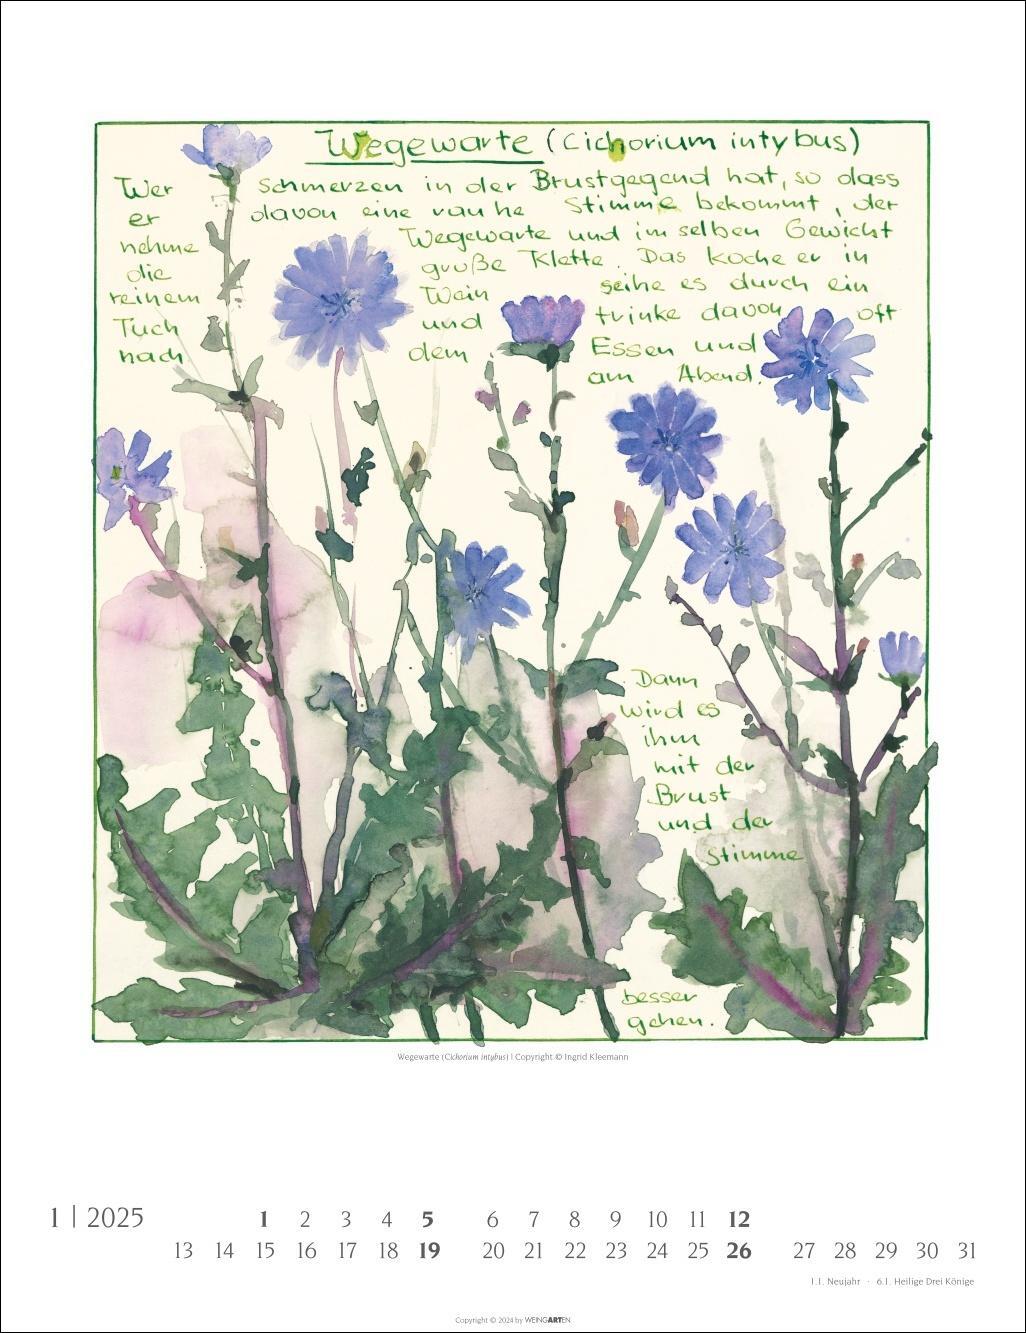 Wegewarte (Cichorium intybus)
Wer schmerzen in der Brustgegend hat, so dass
er davon eine rauhe Stimme bekommt, der
nehme Wegewarte und im selben Gewicht
die große Klette. Das koche er in
reinem Wein seihe es durch ein
Tuch und trinke davon oft
nach dem Essen und
am Abend.
Dann
wird es
ihm
mit der
Brust
und der
Stimme
besser
gehen.
Wegewarte (Cichorium intybus) | Copyright © Ingrid Kleemann
1 | 2025
1 2 3 4 5 6 7 8 9 10 11 12
13 14 15 16 17 18 19 20 21 22 23 24 25 26 27 28 29 30 31
1.1. Neujahr · 6.1. Heilige Drei Könige
Copyright © 2024 by WEINGARTEN